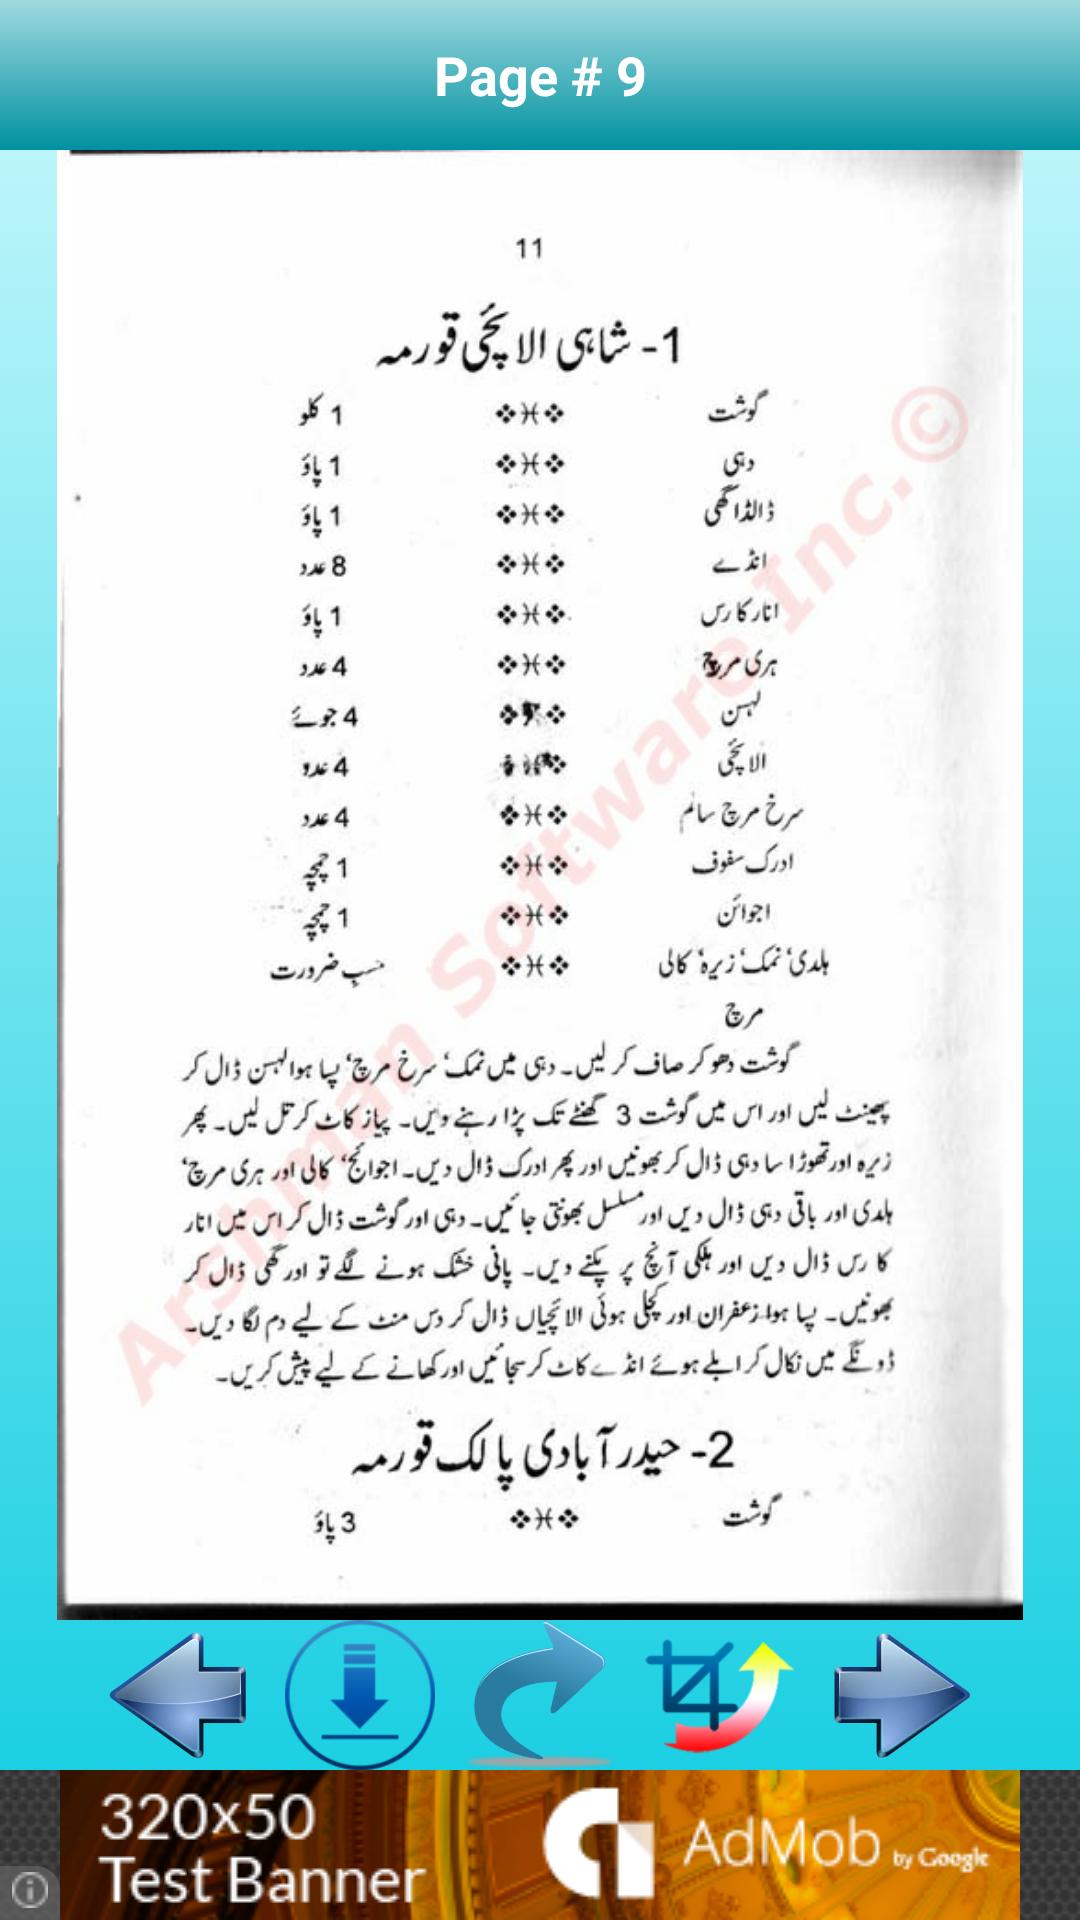 Page # 9
11
1- شاہی الائچی قورمہ
گوشت 1 کلو
دہی 1 پاؤ
ڈالڈا گھی 1 پاؤ
انڈے 8 عدد
انار کا رس 1 پاؤ
ہری مرچ 4 عدد
لہسن 4 جوئے
الائچی 4 عدد
سرخ مرچ سالم 4 عدد
ادرک سفوف 1 چمچہ
اجوائن 1 چمچہ
ہلدی‘ نمک‘ زیرہ‘ کالی حسبِ ضرورت
مرچ
گوشت دھو کر صاف کر لیں۔ دہی میں نمک‘ سرخ مرچ‘ پسا ہوا لہسن ڈال کر
پھینٹ لیں اور اس میں گوشت 3 گھنٹے تک پڑا رہنے دیں۔ پیاز کاٹ کر تل لیں۔ پھر
زیرہ اور تھوڑا سا دہی ڈال کر بھونیں اور پھر ادرک ڈال دیں۔ اجوائچ‘ کالی اور ہری مرچ‘
ہلدی اور باقی دہی ڈال دیں اور مسلسل بھونتی جائیں۔ دہی اور گوشت ڈال کر اس میں انار
کا رس ڈال دیں اور ہلکی آنچ پر پکنے دیں۔ پانی خشک ہونے لگے تو اور گھی ڈال کر
بھونیں۔ پسا ہوا زعفران اور کچلی ہوئی الائچیاں ڈال کر دس منٹ کے لیے دم لگا دیں۔
ڈونگے میں نکال کر ابلے ہوئے انڈے کاٹ کر سجائیں اور کھانے کے لیے پیش کریں۔
2- حیدر آبادی پالک قورمہ
گوشت 3 پاؤ
Arshman Software Inc. ©
320x50
Test Banner
AdMob by Google